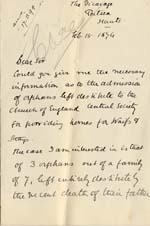 The Vicarage
Hunts
Dear Sir
Could you give me the necessary
information as to the admission
of orphans left destitute to the
Church of England Central Society
for providing homes for Waifs &
Strays
The case I am interested in is that
of 3 orphans out of a family
of 7, left entirely destitute by
the recent death of their father